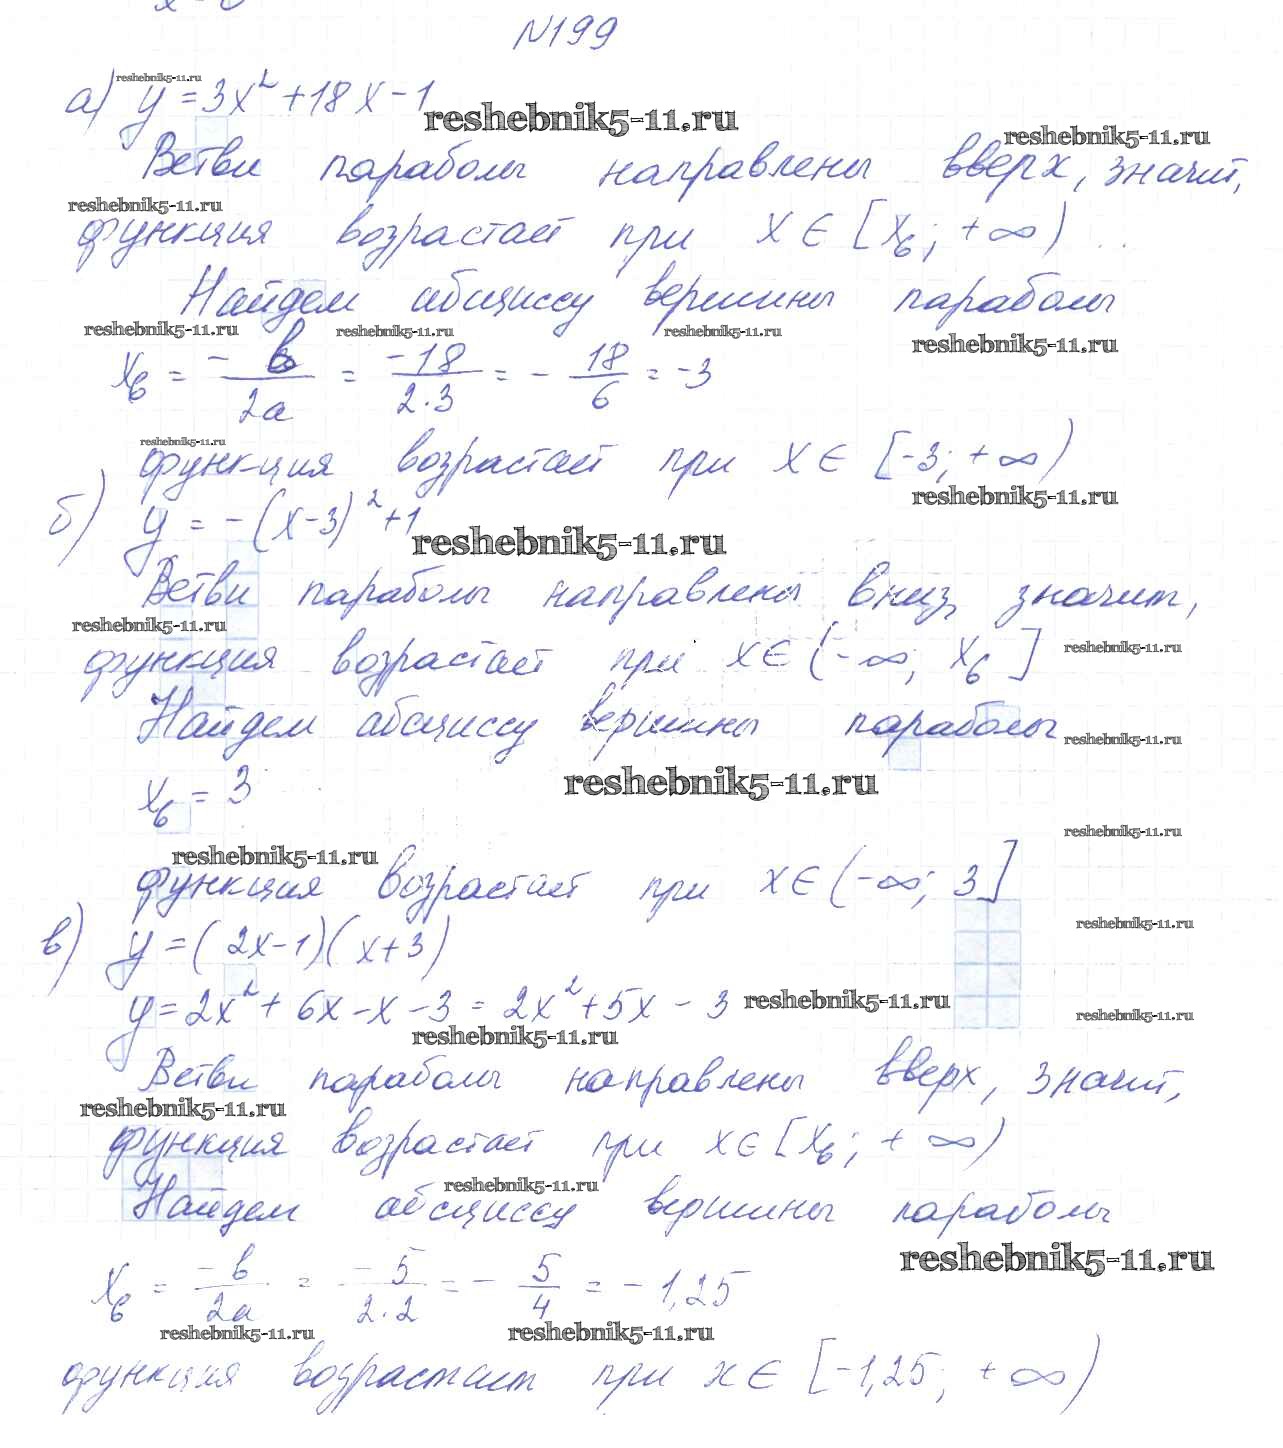 N199
reshebnik5-11.ru
а) y = 3x² + 18x - 1
reshebnik5-11.ru
reshebnik5-11.ru
Ветви параболы направлены вверх, значит,
reshebnik5-11.ru
функция возрастает при x ∈ [xв; +∞)
Найдем абсциссу вершины параболы
reshebnik5-11.ru reshebnik5-11.ru reshebnik5-11.ru reshebnik5-11.ru
xв = -b/2a = -18/2·3 = -18/6 = -3
reshebnik5-11.ru
функция возрастает при x ∈ [-3; +∞)
reshebnik5-11.ru
б) y = -(x-3)² + 1
reshebnik5-11.ru
Ветви параболы направлены вниз, значит,
reshebnik5-11.ru
функция возрастает при x ∈ (-∞; xв]
reshebnik5-11.ru
Найдем абсциссу вершины параболы
reshebnik5-11.ru
xв = 3
reshebnik5-11.ru
reshebnik5-11.ru
reshebnik5-11.ru
функция возрастает при x ∈ (-∞; 3]
reshebnik5-11.ru
в) y = (2x-1)(x+3)
y = 2x² + 6x - x - 3 = 2x² + 5x - 3
reshebnik5-11.ru
reshebnik5-11.ru
reshebnik5-11.ru
Ветви параболы направлены вверх, значит,
reshebnik5-11.ru
функция возрастает при x ∈ [xв; +∞)
reshebnik5-11.ru
Найдем абсциссу вершины параболы
reshebnik5-11.ru
xв = -b/2a = -5/2·2 = -5/4 = -1,25
reshebnik5-11.ru reshebnik5-11.ru
функция возрастает при x ∈ [-1,25; +∞)